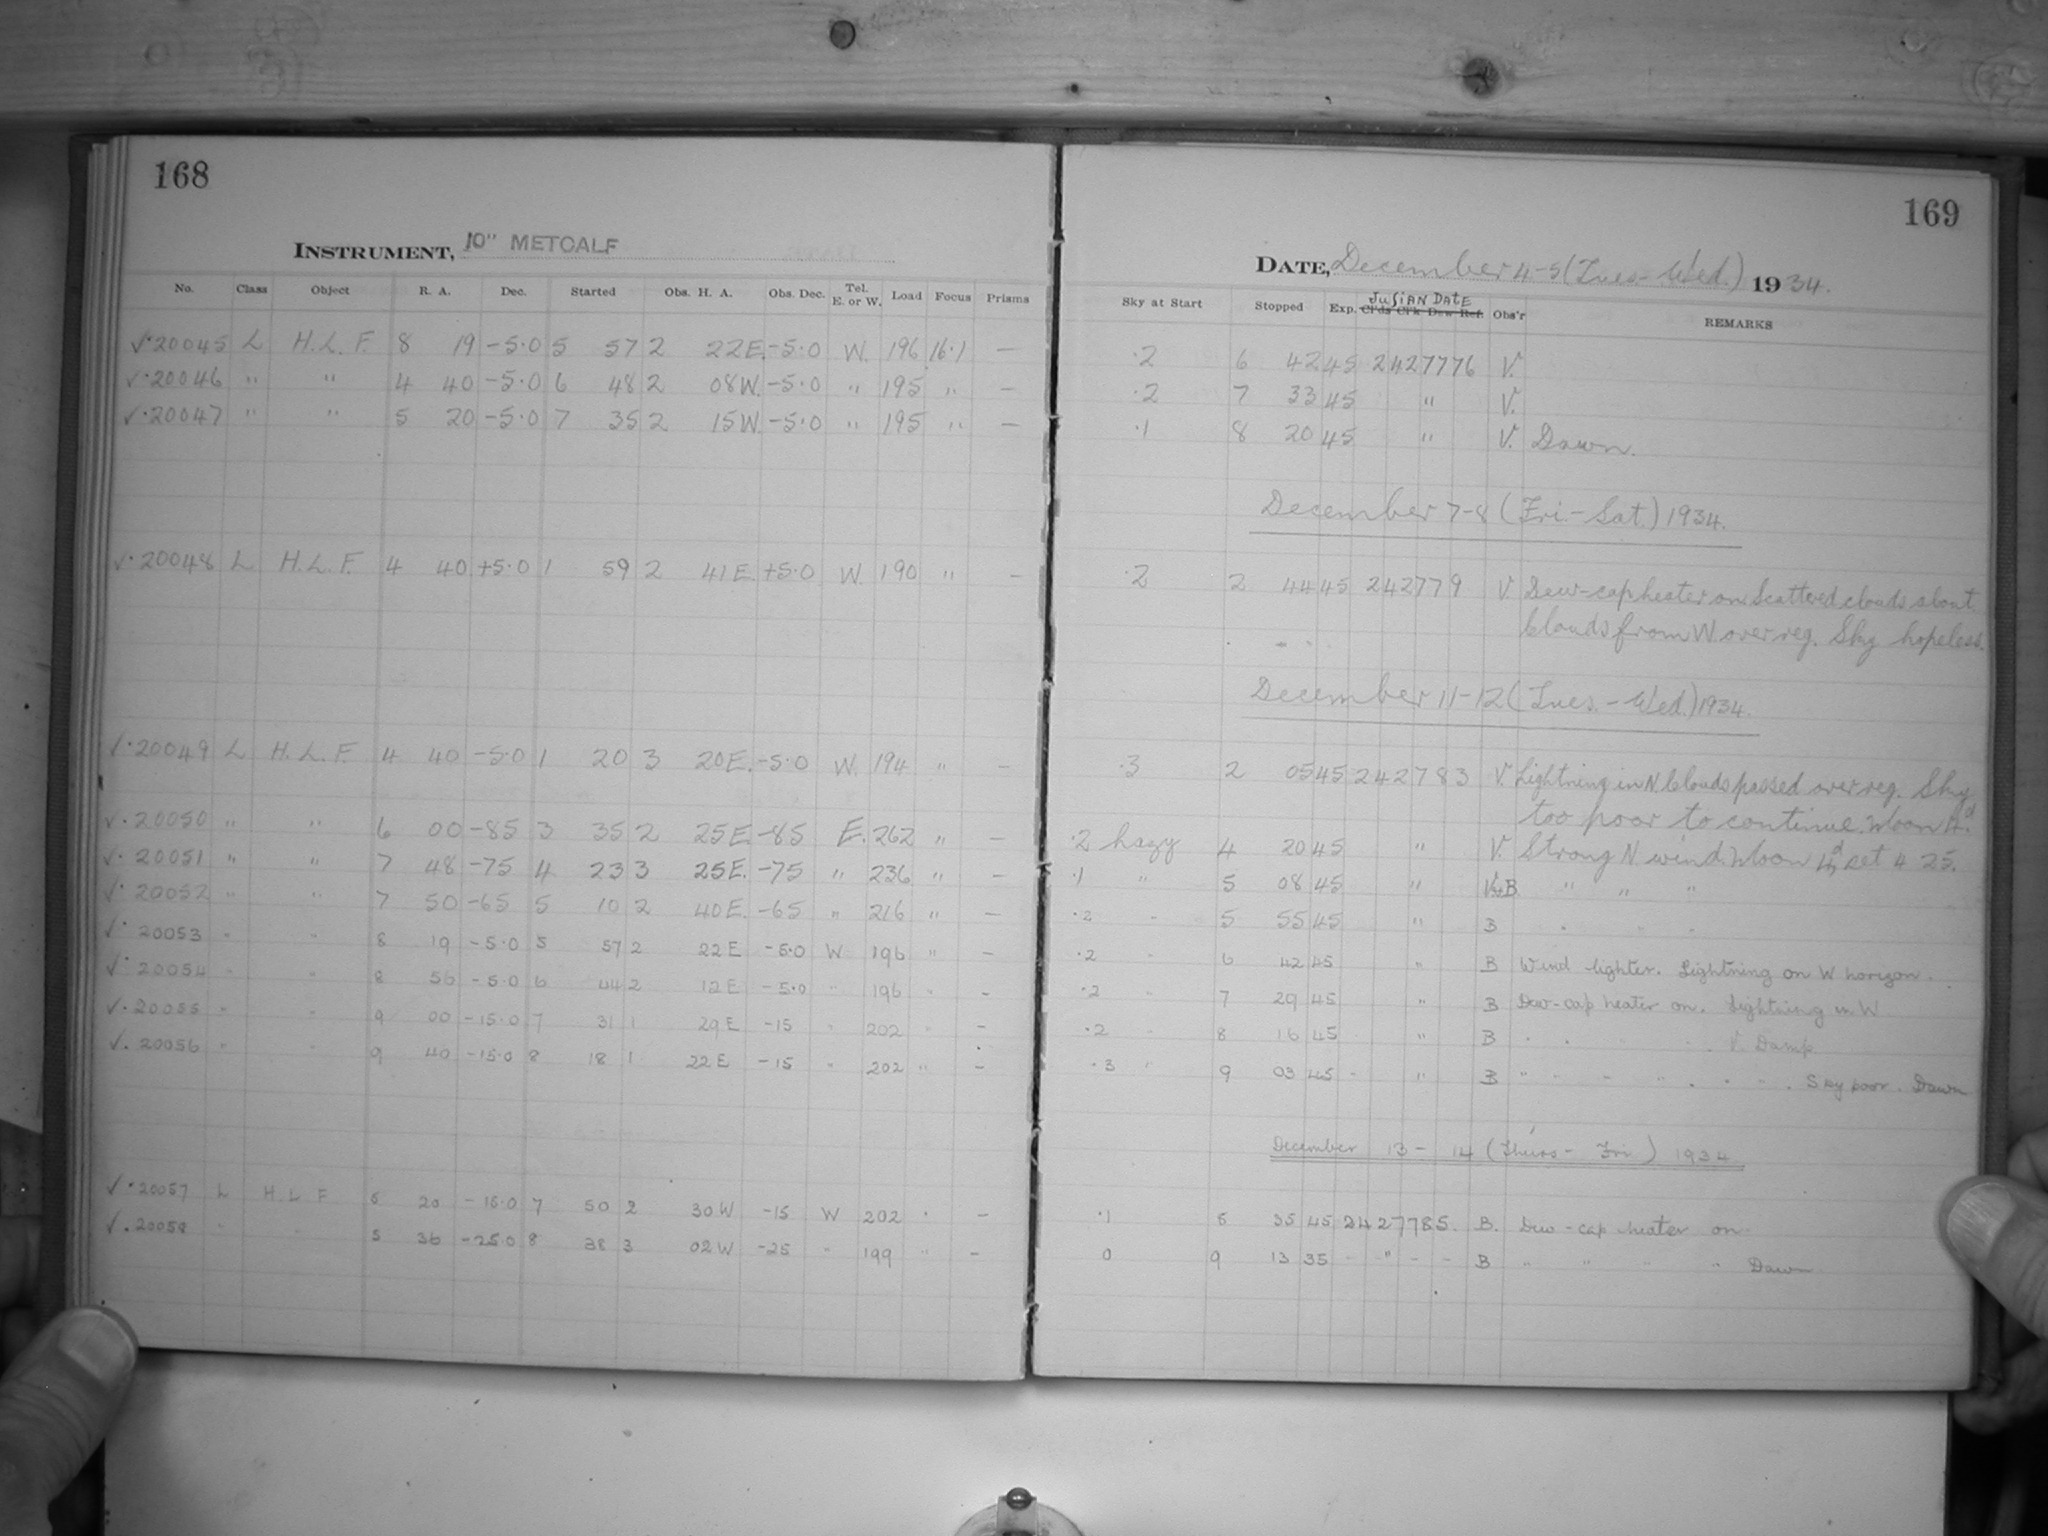 168
INSTRUMENT, 10" METCALF
No. Class Object R. A. Dec. Started Obs. H. A. Obs. Dec. Tel. E. or W. Load Focus Prisms
√·20045 L H.L.F. 8 19 -5.0 5 57 2 22E. -5.0 W. 196 16.1 —
√·20046 " " 4 40 -5.0 6 48 2 08W. -5.0 " 195 " —
√·20047 " " 5 20 -5.0 7 35 2 15W. -5.0 " 195 " —
√·20048 L H.L.F. 4 40 +5.0 1 59 2 41E. +5.0 W. 190 " —
√·20049 L H.L.F. 4 40 -5.0 1 20 3 20E. -5.0 W. 194 " —
√·20050 " " 6 00 -85 3 35 2 25E. -85 E. 262 " —
√·20051 " " 7 48 -75 4 23 3 25E. -75 " 236 " —
√·20052 " " 7 50 -65 5 10 2 40E. -65 " 216 " —
√·20053 " " 8 19 -5.0 5 57 2 22E -5.0 W 196 " —
√·20054 " " 8 56 -5.0 6 44 2 12E -5.0 " 196 " —
√·20055 " " 9 00 -15.0 7 31 1 29E -15 " 202 " —
√·20056 " " 9 40 -15.0 8 18 1 22E -15 " 202 " —
√·20057 L H.L.F 5 20 -15.0 7 50 2 30W -15 W 202 " —
√·20058 " " 5 36 -25.0 8 38 3 02W -25 " 199 " —
169
DATE, December 4-5 (Tues-Wed.) 1934.
Sky at Start Stopped Exp. JULIAN DATE Cl'ds Cl'k Dew Ref. Obs'r REMARKS
.2 6 42 45 2427776 V.
.2 7 33 45 " V.
.1 8 20 45 " V. Dawn.
December 7-8 (Fri.-Sat.) 1934.
.2 2 44 45 242779 V. Dew-cap heater on. Scattered clouds about
Clouds from W over reg. Sky hopeless.
December 11-12 (Tues.-Wed.) 1934.
.3 2 05 45 242783 V. Lightning in N. Clouds passed over reg. Sky
too poor to continue. Moon 4d.
.2 hazy 4 20 45 " V. Strong N wind. Moon 4d, set 4 25.
.1 " 5 08 45 " V+B " " "
.2 " 5 55 45 " B " " "
.2 " 6 42 45 " B Wind lighter. Lightning on W horizon.
.2 " 7 29 45 " B Dew-cap heater on. Lightning in W
.2 8 16 45 " B " " " " " V. Damp
.3 " 9 03 45 " " B " " " " " " " Sky poor. Dawn
December 13-14 (Thurs-Fri) 1934
.1 8 35 45 2427785. B. Dew-cap heater on
0 9 13 35 " B " " " " Dawn